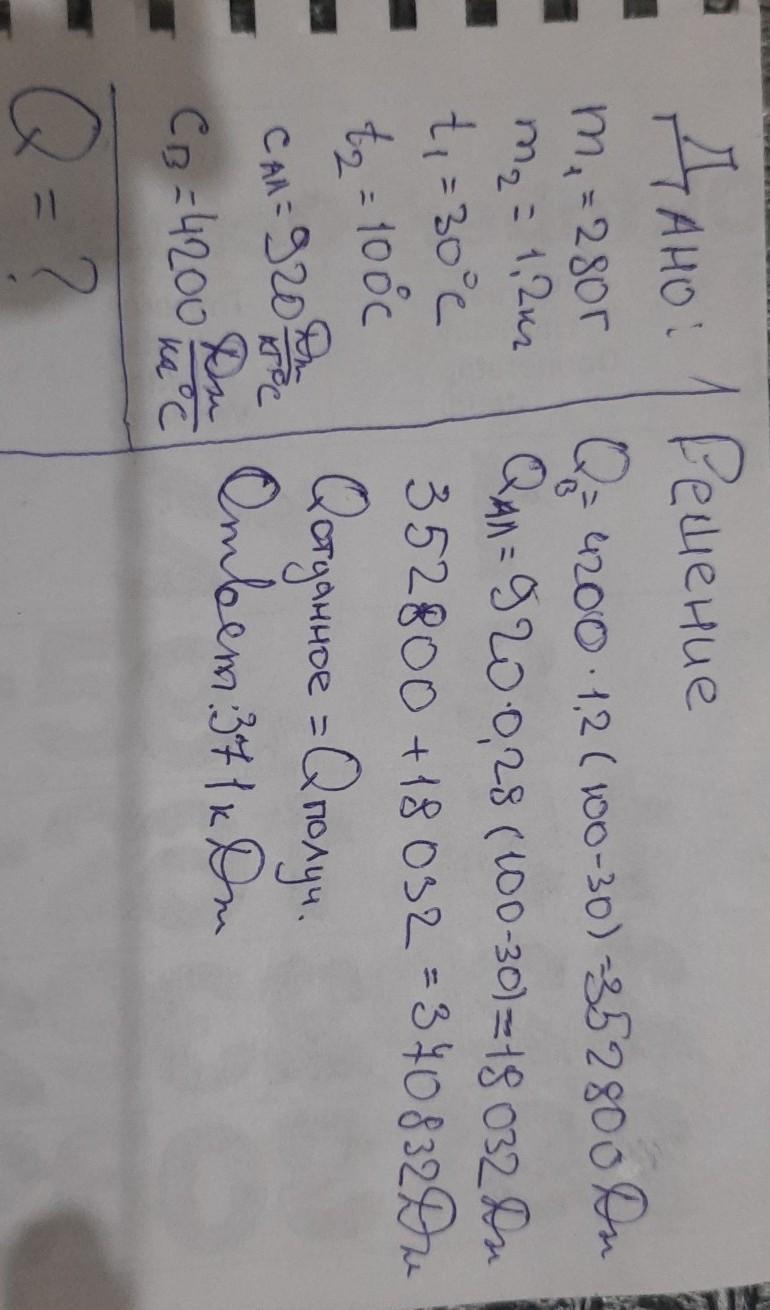 Дано:
m₁ = 280г
m₂ = 1,2кг
t₁ = 30°C
t₂ = 100°C
cал = 920 Дж/кг°C
cв = 4200 Дж/кг°C
Q = ?
Решение
Qв = 4200 · 1,2 (100-30) = 352800 Дж
Qал = 920 · 0,28 (100-30) = 18032 Дж
352800 + 18032 = 370832 Дж
Qотданное = Qполуч.
Ответ: 371 кДж